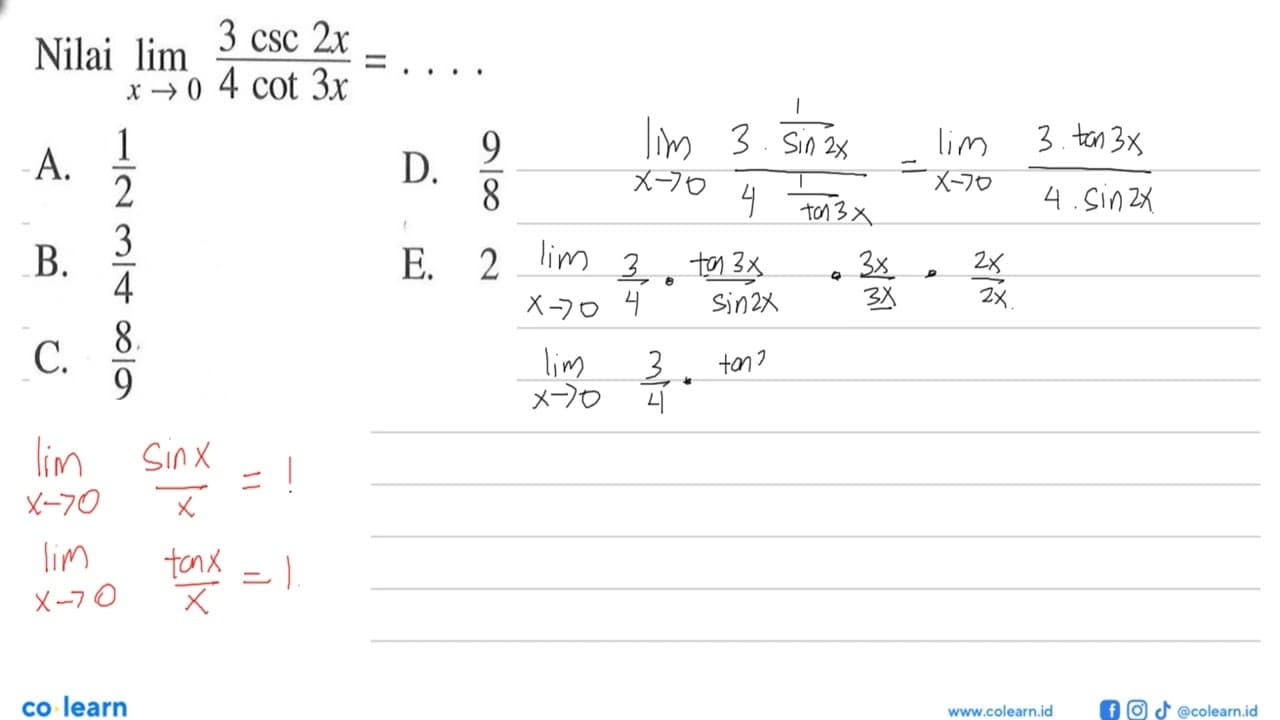 Nilai lim x→0 3 csc 2x / 4 cot 3x = . . . .
A. 1/2
B. 3/4
C. 8/9
D. 9/8
E. 2
lim x→0 3 . 1/sin 2x / 4 1/tan 3x = lim x→0 3 . tan 3x / 4 . sin 2x
lim x→0 3/4 . tan 3x / sin 2x . 3x/3x . 2x/2x
lim x→0 3/4 . tan
lim x→0 sin x / x = 1
lim x→0 tan x / x = 1
co learn
www.colearn.id
@colearn.id